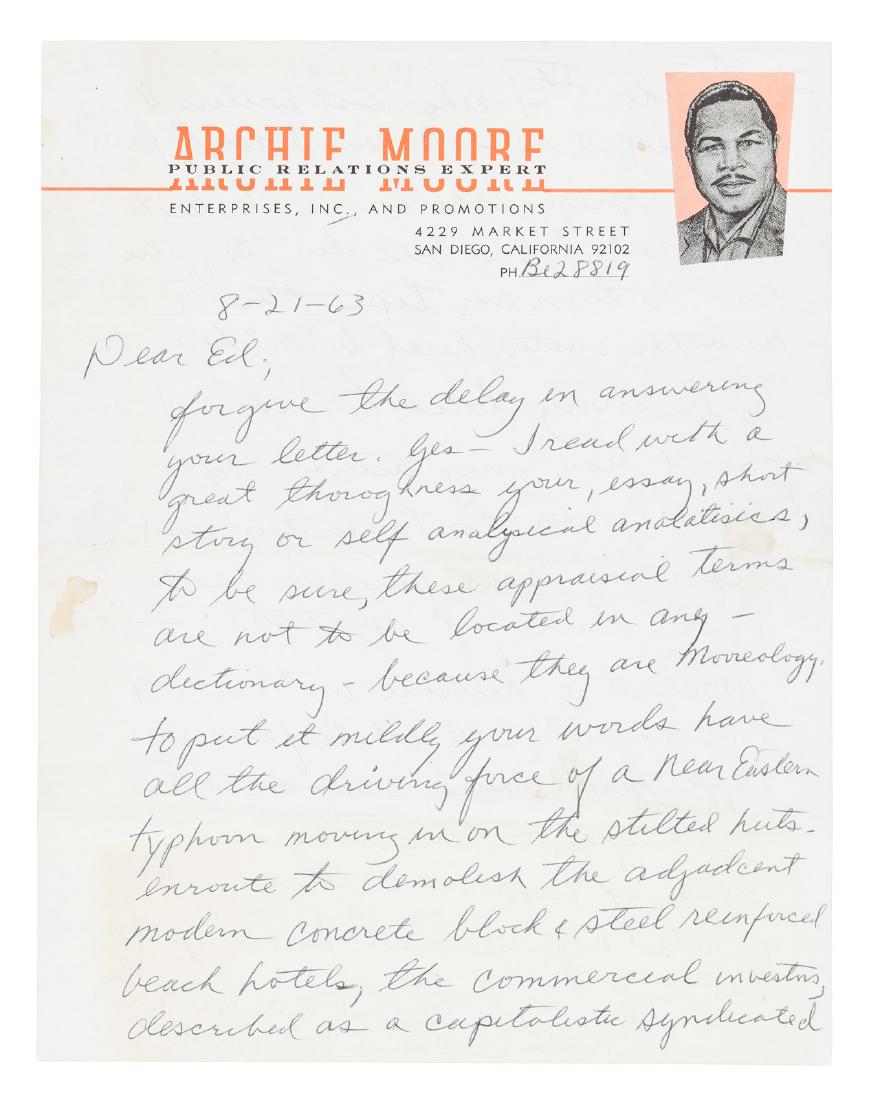 ARCHIE MOORE
PUBLIC RELATIONS EXPERT
ENTERPRISES, INC., AND PROMOTIONS
4229 MARKET STREET
SAN DIEGO, CALIFORNIA 92102
PH. Be28819
8-21-63
Dear Ed;
forgive the delay in answering
your letter. Yes — I read with a
great thoroghness your, essay, short
story or self analysical analatisics,
to be sure, these appraisial terms
are not to be located in any —
dectionary - because they are Mooreology.
to put it mildly your words have
all the driving force of a Near Eastern
typhoon moving in on the stilted huts -
enroute to demolish the adjadcent
modern concrete block & steel reinforced
beach hotels, the commercial investrs,
described as a capitalistic syndicated